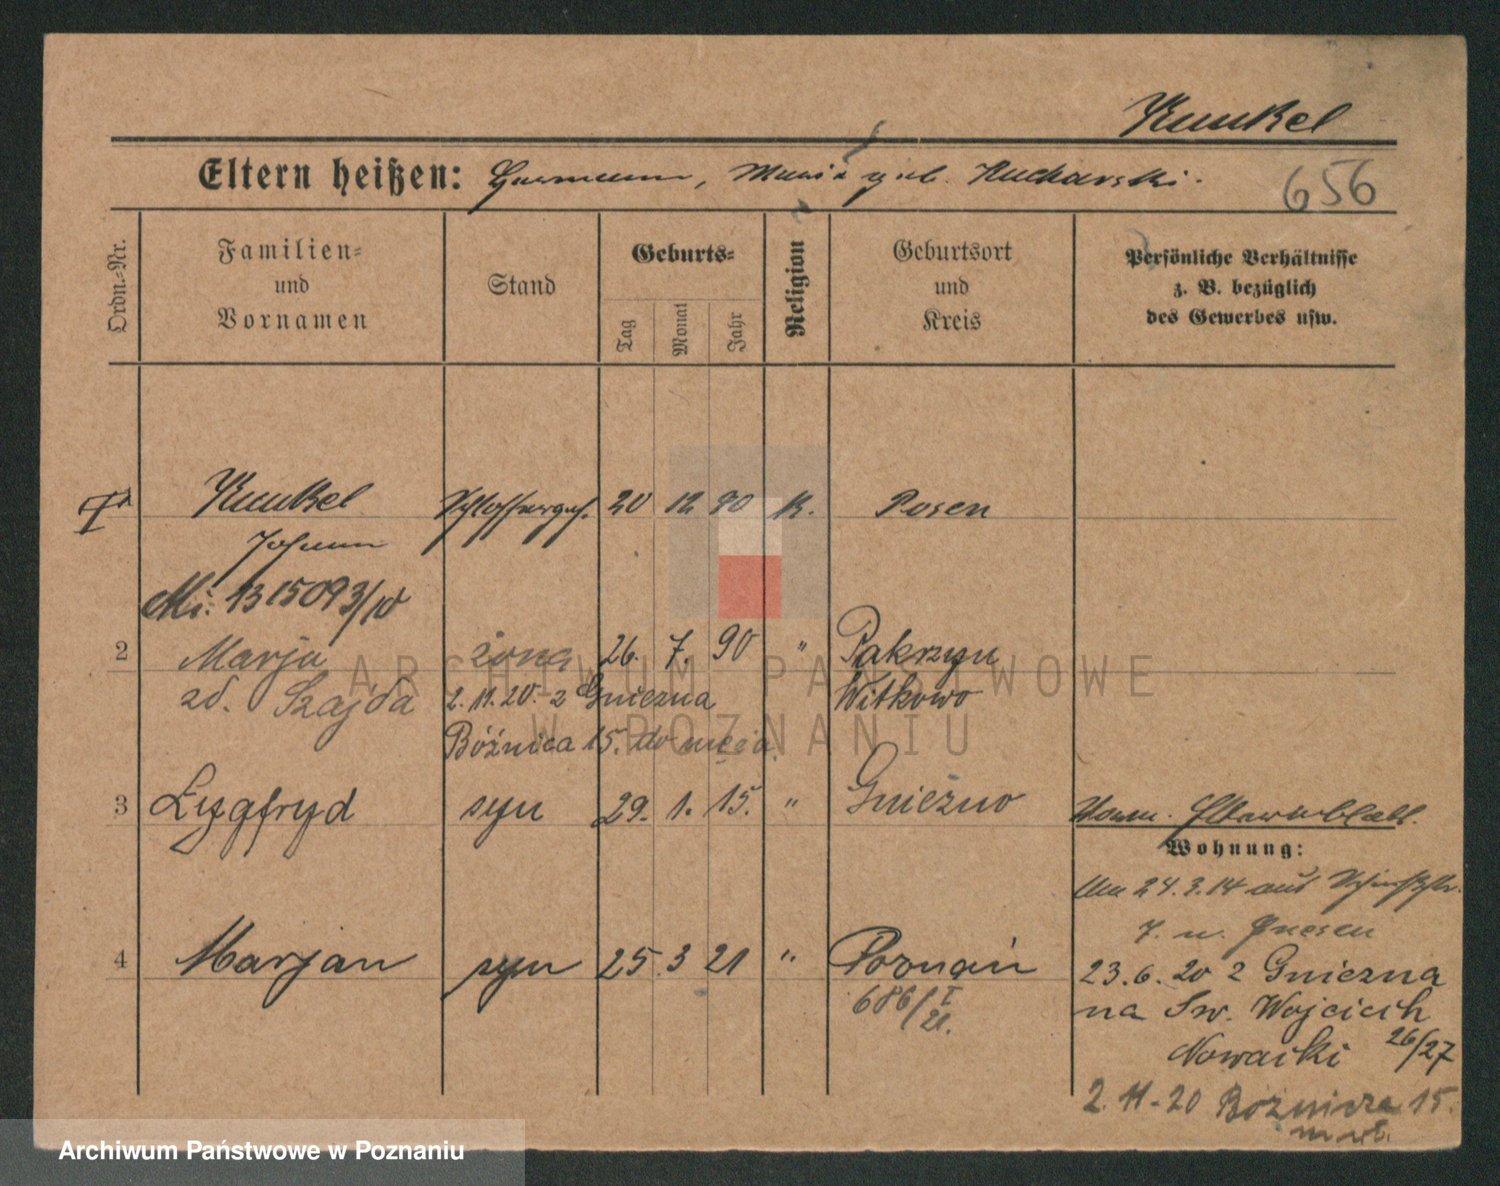 Kunkel
Eltern heißen: Hermann, Maria geb. Kucharski.
656
Ordn.-Nr.
Familien- und Vornamen
Stand
Geburts-
Tag
Monat
Jahr
Religion
Geburtsort und Kreis
Persönliche Verhältnisse z. B. bezüglich des Gewerbes usw.
Kunkel Schlosserges. 20 12 80 K. Posen
Johann
Mi. 1315093/10
2 Marja żona 26. 7. 90 " Pakrzyn
zd. Szajda 2.11.20. z Gniezna Witkowo
Bóżnica 15. do męża
3 Zygfryd syn 29. 1. 15. " Gniezno
Wohnung:
24.3.14 aus
7. n. Gnesen
4 Marjan syn 25. 3 21 " Poznań
686/I 21.
23.6.20 z Gniezna
na Św. Wojciech
Nowacki 26/27
2.11-20 Bożnicza 15.
ARCHIWUM PAŃSTWOWE
W POZNANIU
Archiwum Państwowe w Poznaniu